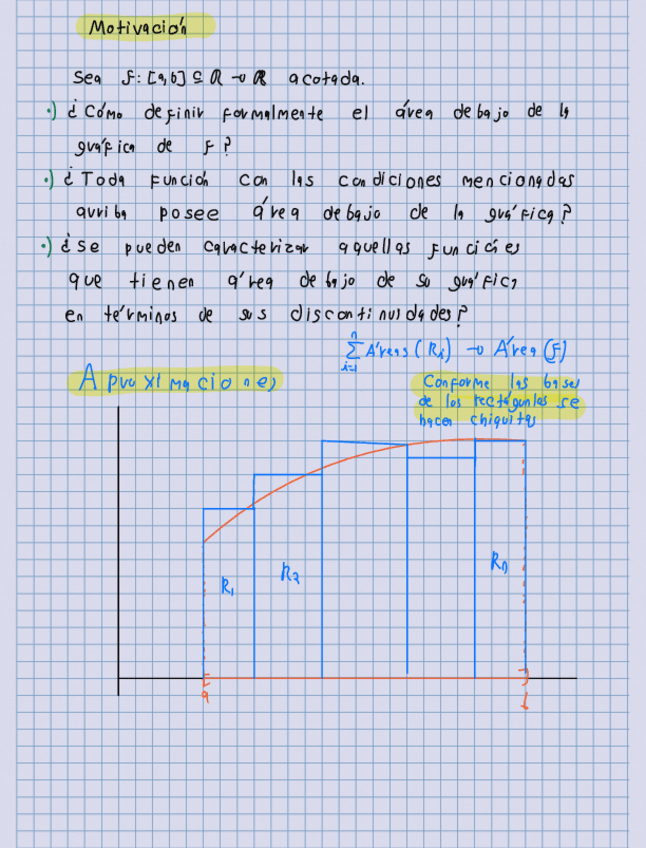 Motivación
Sea f: [a,b] ⊆ ℝ → ℝ acotada.
•) ¿Cómo definir formalmente el área debajo de la
gráfica de f?
•) ¿Toda función con las condiciones mencionadas
arriba posee área debajo de la gráfica?
•) ¿se pueden caracterizar aquellas funciones
que tienen área debajo de su gráfica
en términos de sus discontinuidades?
n∑i=1 Áreas (Ri) → Área (f)
Aproximaciones
Conforme las bases
de los rectángulos se
hacen chiquitas
R1
R2
Rn
a
b